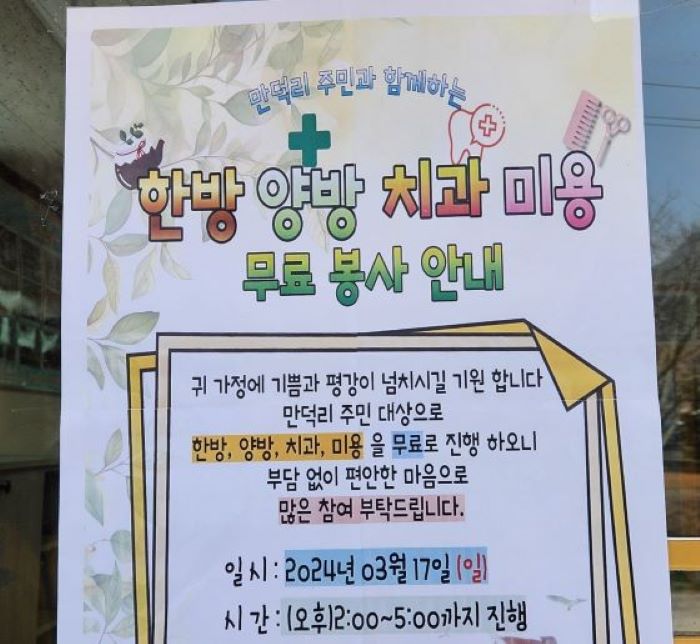 만덕리 주민과 함께하는
한방 양방 치과 미용
무료 봉사 안내
귀 가정에 기쁨과 평강이 넘치시길 기원 합니다
만덕리 주민 대상으로
한방, 양방, 치과, 미용 을 무료로 진행 하오니
부담 없이 편안한 마음으로
많은 참여 부탁드립니다.
일시 : 2024년 03월 17일 (일)
시 간 : (오후)2:00~5:00까지 진행